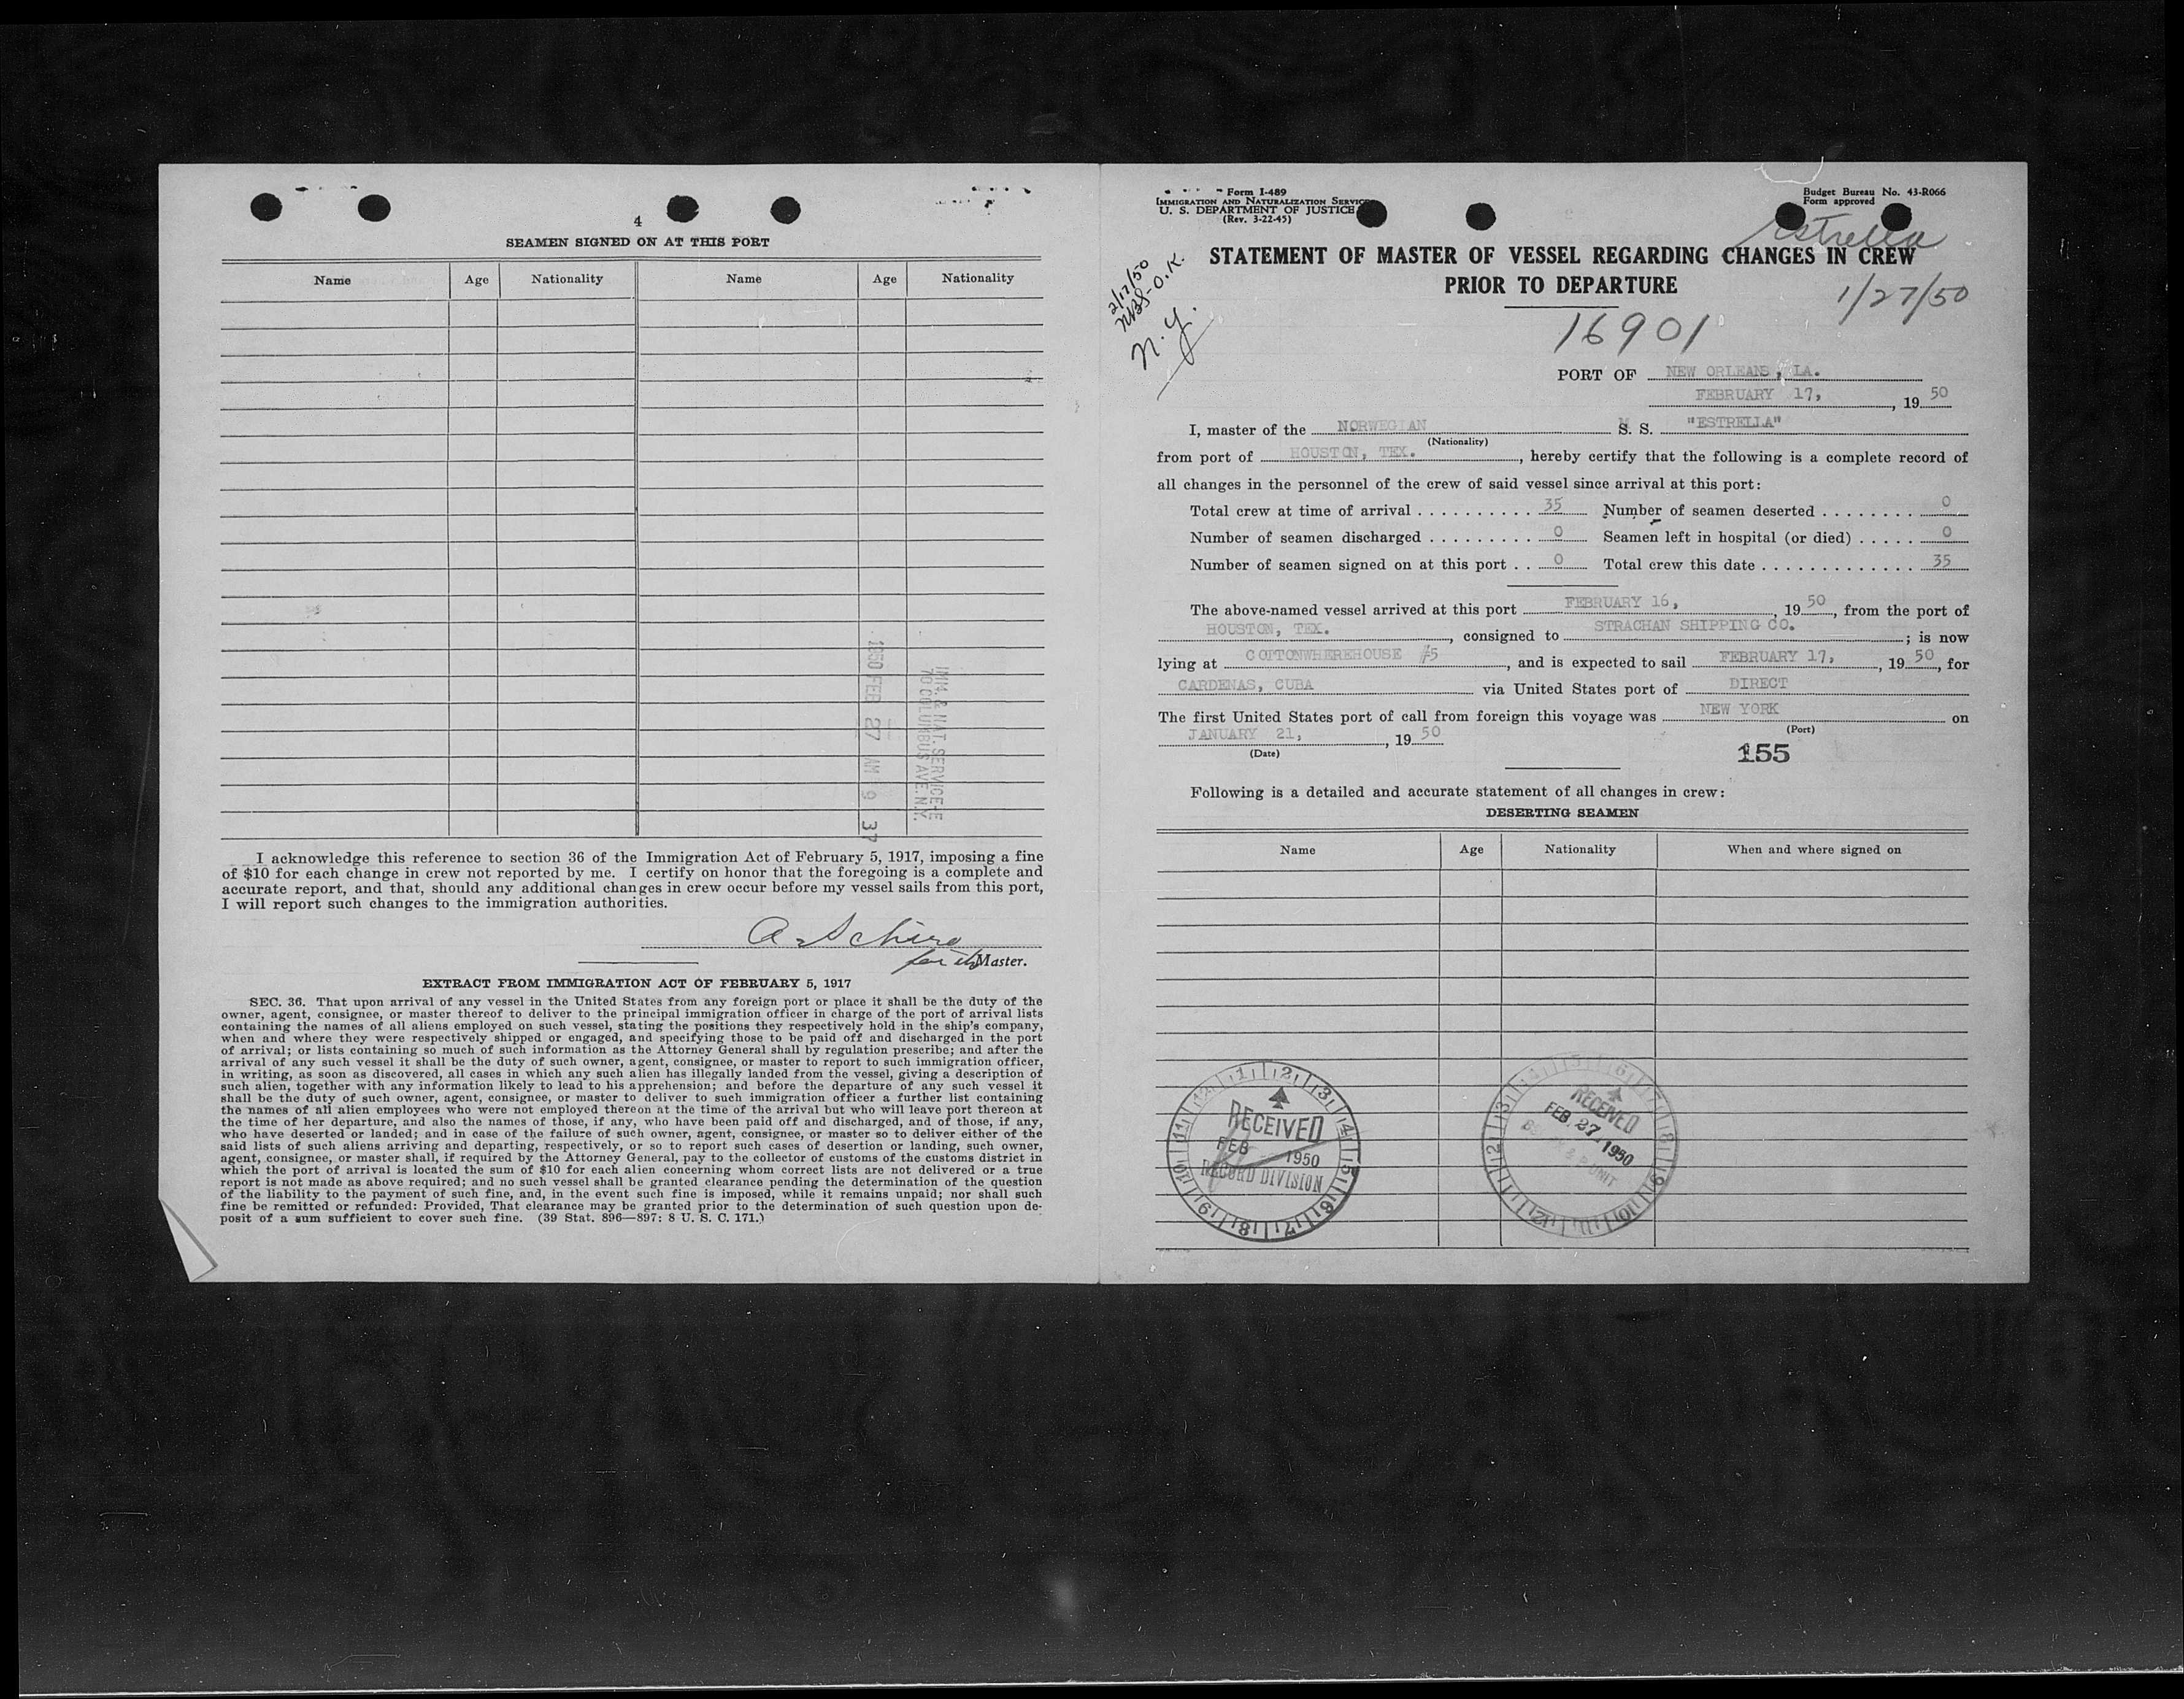 4
SEAMEN SIGNED ON AT THIS PORT
Name Age Nationality Name Age Nationality
1950 FEB 27 AM 9 37
IMM. & NAT. SERVICE
70 COLUMBUS AVE. N.Y.
I acknowledge this reference to section 36 of the Immigration Act of February 5, 1917, imposing a fine
of $10 for each change in crew not reported by me. I certify on honor that the foregoing is a complete and
accurate report, and that, should any additional changes in crew occur before my vessel sails from this port,
I will report such changes to the immigration authorities.
A. Schiro
for the Master.
EXTRACT FROM IMMIGRATION ACT OF FEBRUARY 5, 1917
SEC. 36. That upon arrival of any vessel in the United States from any foreign port or place it shall be the duty of the
owner, agent, consignee, or master thereof to deliver to the principal immigration officer in charge of the port of arrival lists
containing the names of all aliens employed on such vessel, stating the positions they respectively hold in the ship's company,
when and where they were respectively shipped or engaged, and specifying those to be paid off and discharged in the port
of arrival; or lists containing so much of such information as the Attorney General shall by regulation prescribe; and after the
arrival of any such vessel it shall be the duty of such owner, agent, consignee, or master to report to such immigration officer,
in writing, as soon as discovered, all cases in which any such alien has illegally landed from the vessel, giving a description of
such alien, together with any information likely to lead to his apprehension; and before the departure of any such vessel it
shall be the duty of such owner, agent, consignee, or master to deliver to such immigration officer a further list containing
the names of all alien employees who were not employed thereon at the time of the arrival but who will leave port thereon at
the time of her departure, and also the names of those, if any, who have been paid off and discharged, and of those, if any,
who have deserted or landed; and in case of the failure of such owner, agent, consignee, or master so to deliver either of the
said lists of such aliens arriving and departing, respectively, or so to report such cases of desertion or landing, such owner,
agent, consignee, or master shall, if required by the Attorney General, pay to the collector of customs of the customs district in
which the port of arrival is located the sum of $10 for each alien concerning whom correct lists are not delivered or a true
report is not made as above required; and no such vessel shall be granted clearance pending the determination of the question
of the liability to the payment of such fine, and, in the event such fine is imposed, while it remains unpaid; nor shall such
fine be remitted or refunded: Provided, That clearance may be granted prior to the determination of such question upon de-
posit of a sum sufficient to cover such fine. (39 Stat. 896—897; 8 U. S. C. 171.)
Form I-489
IMMIGRATION AND NATURALIZATION SERVICE
U. S. DEPARTMENT OF JUSTICE
(Rev. 3-22-45)
Budget Bureau No. 43-R066
Form approved
Estrella
STATEMENT OF MASTER OF VESSEL REGARDING CHANGES IN CREW
PRIOR TO DEPARTURE
1/27/50
2/17/50
O.K.
N.Y.
16901
PORT OF NEW ORLEANS, LA.
FEBRUARY 17, , 19 50
I, master of the NORWEGIAN S. S. "ESTRELLA"
(Nationality)
from port of HOUSTON, TEX. , hereby certify that the following is a complete record of
all changes in the personnel of the crew of said vessel since arrival at this port:
Total crew at time of arrival 35 Number of seamen deserted 0
Number of seamen discharged 0 Seamen left in hospital (or died) 0
Number of seamen signed on at this port 0 Total crew this date 35
The above-named vessel arrived at this port FEBRUARY 16, , 19 50, from the port of
HOUSTON, TEX. , consigned to STRACHAN SHIPPING CO. ; is now
lying at COTTONWHEREHOUSE #5 , and is expected to sail FEBRUARY 17, , 19 50, for
CARDENAS, CUBA via United States port of DIRECT
The first United States port of call from foreign this voyage was NEW YORK on
(Port)
JANUARY 21, , 19 50
(Date)
155
Following is a detailed and accurate statement of all changes in crew:
DESERTING SEAMEN
Name Age Nationality When and where signed on
RECEIVED
FEB 1950
RECORD DIVISION
RECEIVED
FEB. 27 1950
UNIT